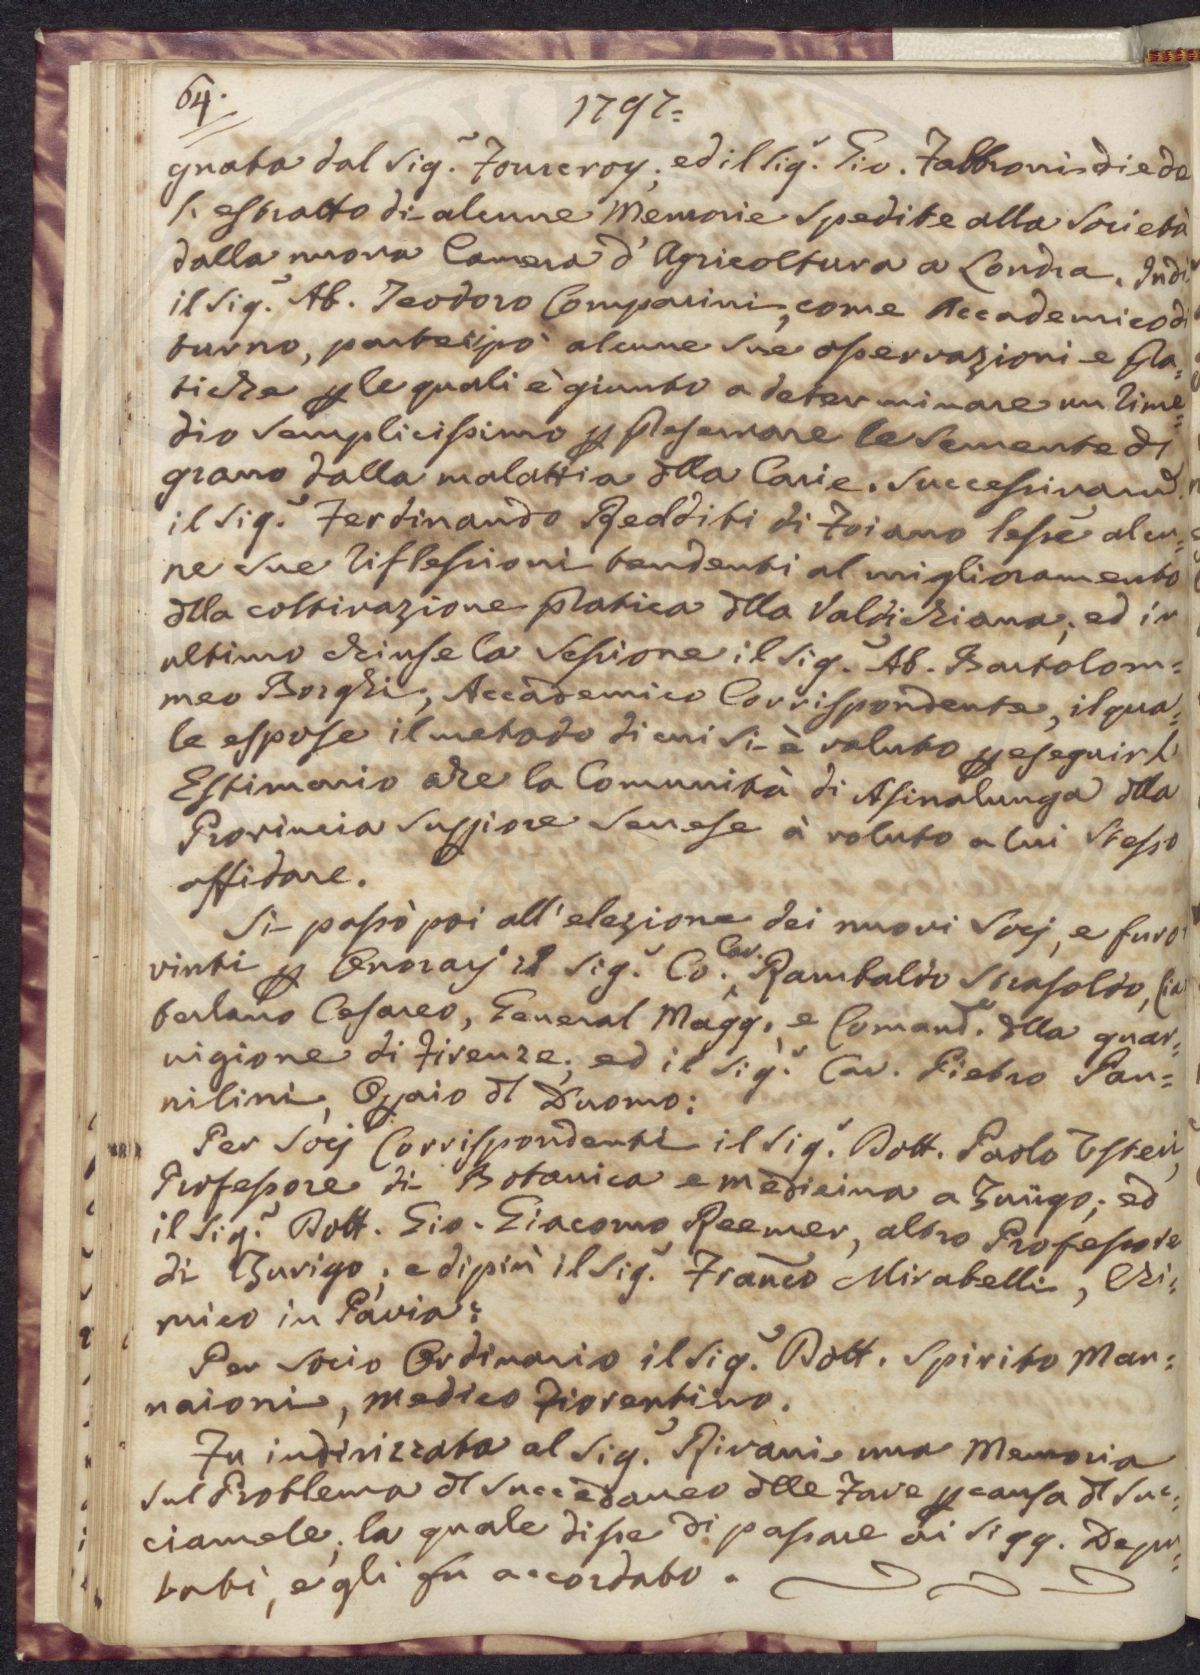 64.
1797=
gnata dal Sig.r Fourcroy; ed il Sig.r Gio. Fabbroni diede
l'estratto di alcune Memorie spedite alla Società
dalla nuova Camera d'Agricoltura a Londra. Indi
il Sig.r Ab. Teodoro Comparini, come Accademico di
turno, partecipò alcune sue osservazioni e pra=
tiche p le quali è giunto a determinare un rime=
dio semplicissimo p preservare le semente di
grano dalla malattia dlla Carie. Successivamd.
il Sig.r Ferdinando Redditi di Foiano lesse alcu=
ne sue riflessioni tendenti al miglioramento
dlla coltivazione pratica dlla Valdichiana; ed in
ultimo chiuse la sessione il Sig.r Ab. Bartolom=
meo Borghi, Accademico Corrispondente, il qua=
le espose il metodo di cui si è valuto p eseguir l'
Estimario che la Comunità di Asinalunga dlla
Provincia Suppiore Senese à voluto a lui stesso
affidare.
Si passò poi all'elezione dei nuovi Socj, e furo
vinti p Onorarj il Sig.r Co. Cav. Rambaldo Strasoldo, Cia
berlano Cesareo, General Magg. e Comand. dlla guar=
nigione di Firenze; ed il Sig.r Cav. Pietro Pan=
nilini, Opaio dl Duomo:
Per Socj Corrispondenti il Sig.r Dott. Paolo Usteri,
Professore di Botanica e medicina a Zurigo; ed
il Sig.r Dott. Gio. Giacomo Reemer, altro Professore
di Zurigo; e di più il Sig.r Franco Mirabelli, Chi=
mico in Pavia:
Per Socio Ordinario il Sig.r Dott. Spirito Man=
naioni, medico Fiorentino.
Fu indirizzata al Sig.r Rivani una Memoria
sul Problema dl succedaneo dlle Fave p causa dl suc=
ciamele; la quale disse di passare ai Sigg. Depu=
tati, e gli fu accordato.